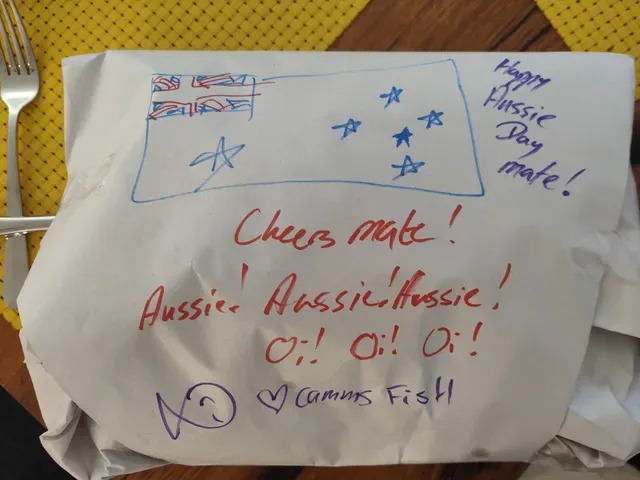 Happy
Aussie
Day
mate!
Cheers mate!
Aussie! Aussie! Aussie!
Oi! Oi! Oi!
♡ Camms Fish